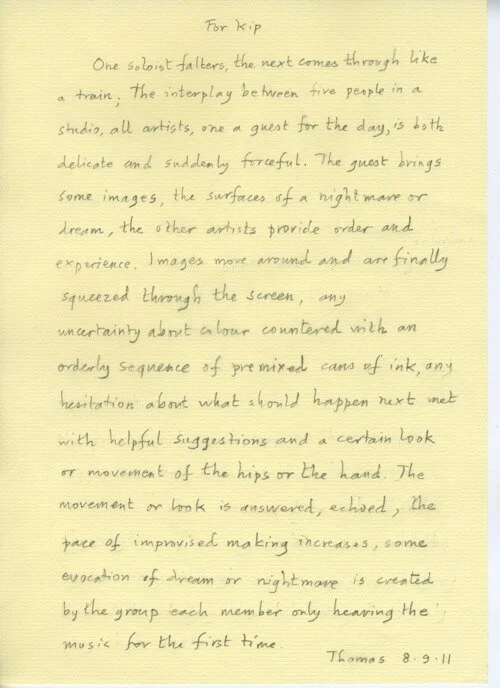 For Kip
One soloist falters, the next comes through like
a train; The interplay between five people in a
studio, all artists, one a guest for the day, is both
delicate and suddenly forceful. The guest brings
some images, the surfaces of a nightmare or
dream, the other artists provide order and
experience. Images move around and are finally
squeezed through the screen, any
uncertainty about colour countered with an
orderly sequence of premixed cans of ink, any
hesitation about what should happen next met
with helpful suggestions and a certain look
or movement of the hips or the hand. The
movement or look is answered, echoed, the
pace of improvised making increases, some
evocation of dream or nightmare is created
by the group each member only hearing the
music for the first time.
Thomas 8.9.11